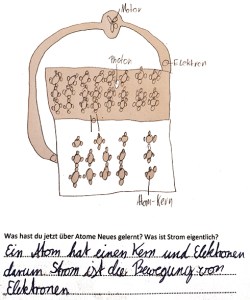 Motor
Elektron
Atom-Kern
Was hast du jetzt über Atome Neues gelernt? Was ist Strom eigentlich?
Ein Atom hat einen Kern und Elektronen
darum Strom ist die Bewegung von
Elektronen